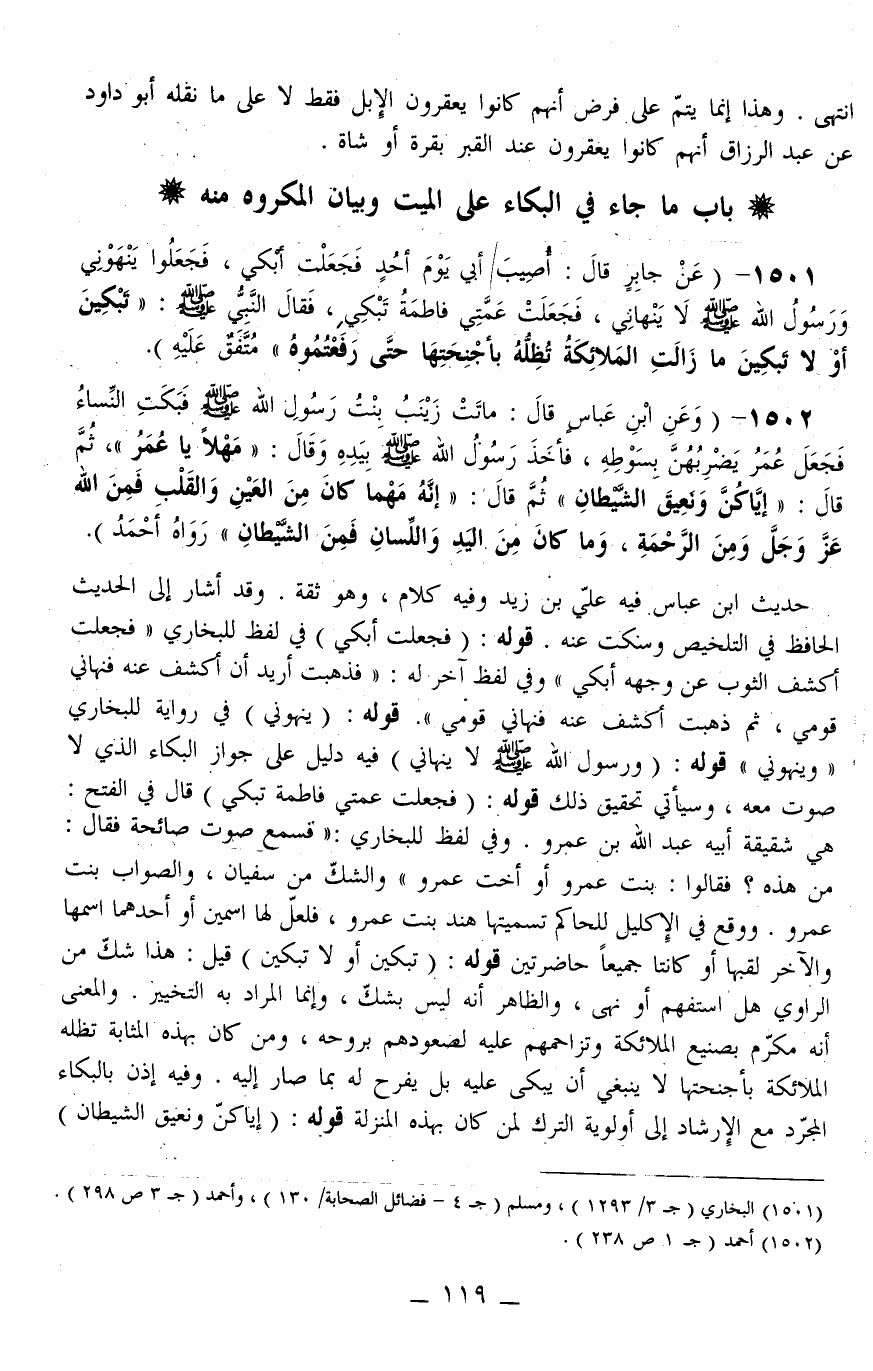 انتهى . وهذا إنما يتمّ على فرض أنهم كانوا يعقرون الإبل فقط لا على ما نقله أبو داود
عن عبد الرزاق أنهم كانوا يعقرون عند القبر بقرة أو شاة .
باب ما جاء في البكاء على الميت وبيان المكروه منه
١٥٠١- ( عَنْ جابِرٍ قالَ : أُصِيبَ أبي يَوْمَ أحُدٍ فَجَعَلْت أبْكي ، فَجَعَلُوا يَنْهَوْنِي
وَرَسُولُ الله ﷺ لَا يَنْهانِي ، فَجَعَلَتْ عَمَّتِي فاطمَةُ تَبْكي ، فَقالَ النَّبِيُّ ﷺ : « تَبْكِينَ
أوْ لا تَبكِينَ ما زَالَتِ المَلائِكَةُ تُظِلُّهُ بأجْنِحَتِهَا حتَّى رَفَعْتُمُوهُ » مُتَّفَقٌ عَلَيْهِ ).
١٥٠٢- ( وَعَنِ ابْنِ عَباسٍ قالَ : ماتَتْ زَيْنَبُ بِنْتُ رَسُولِ الله ﷺ فَبَكَتِ النِّساءُ
فَجَعَلَ عُمَرُ يَضْرِبُهُنَّ بِسَوْطِهِ ، فأخَذَ رَسُولُ الله ﷺ بِيَدِهِ وَقَالَ : « مَهْلاً يا عُمَرُ »، ثُمَّ
قالَ : « إيَّاكُنَّ وَنَعِيقَ الشَّيْطانِ » ثُمَّ قالَ : « إنَّهُ مَهْما كانَ مِنَ العَيْنِ وَالقَلْبِ فَمِنَ الله
عَزَّ وَجَلَّ وَمِنَ الرَّحْمَةِ ، وَما كانَ مِنَ اليَدِ وَاللِّسانِ فَمِنَ الشَّيْطانِ » رَوَاهُ أحْمَدُ ).
حديث ابن عباس فيه عليّ بن زيد وفيه كلام ، وهو ثقة . وقد أشار إلى الحديث
الحافظ في التلخيص وسكت عنه . قوله : ( فجعلت أبكي ) في لفظ للبخاري « فجعلت
أكشف الثوب عن وجهه أبكي » وفي لفظ آخر له : « فذهبت أريد أن أكشف عنه فنهاني
قومي ، ثم ذهبت أكشف عنه فنهاني قومي ». قوله : ( ينهوني ) في رواية للبخاري
« وينهوني » قوله : ( ورسول الله ﷺ لا ينهاني ) فيه دليل على جواز البكاء الذي لا
صوت معه ، وسيأتي تحقيق ذلك قوله : ( فجعلت عمتي فاطمة تبكي ) قال في الفتح :
هي شقيقة أبيه عبد الله بن عمرو . وفي لفظ للبخاري :« فسمع صوت صائحة فقال :
من هذه ؟ فقالوا : بنت عمرو أو أخت عمرو » والشكّ من سفيان ، والصواب بنت
عمرو . ووقع في الإكليل للحاكم تسميتها هند بنت عمرو ، فلعلّ لها اسمين أو أحدهما اسمها
والآخر لقبها أو كانتا جميعاً حاضرتين قوله : ( تبكين أو لا تبكين ) قيل : هذا شكّ من
الراوي هل استفهم أو نهى ، والظاهر أنه ليس بشكّ ، وإنما المراد به التخيير . والمعنى
أنه مكرّم بصنيع الملائكة وتزاحمهم عليه لصعودهم بروحه ، ومن كان بهذه المثابة تظله
الملائكة بأجنحتها لا ينبغي أن يبكى عليه بل يفرح له بما صار إليه . وفيه إذن بالبكاء
المجرّد مع الإرشاد إلى أولوية الترك لمن كان بهذه المنزلة قوله : ( إياكنّ ونعيق الشيطان )
(١٥٠١) البخاري ( جـ ٣/ ١٢٩٣ ) ، ومسلم ( جـ ٤ - فضائل الصحابة/ ١٣٠ ) ، وأحمد ( جـ ٣ ص ٢٩٨ ) .
(١٥٠٢) أحمد ( جـ ١ ص ٢٣٨ ) .
_ ١١٩ _